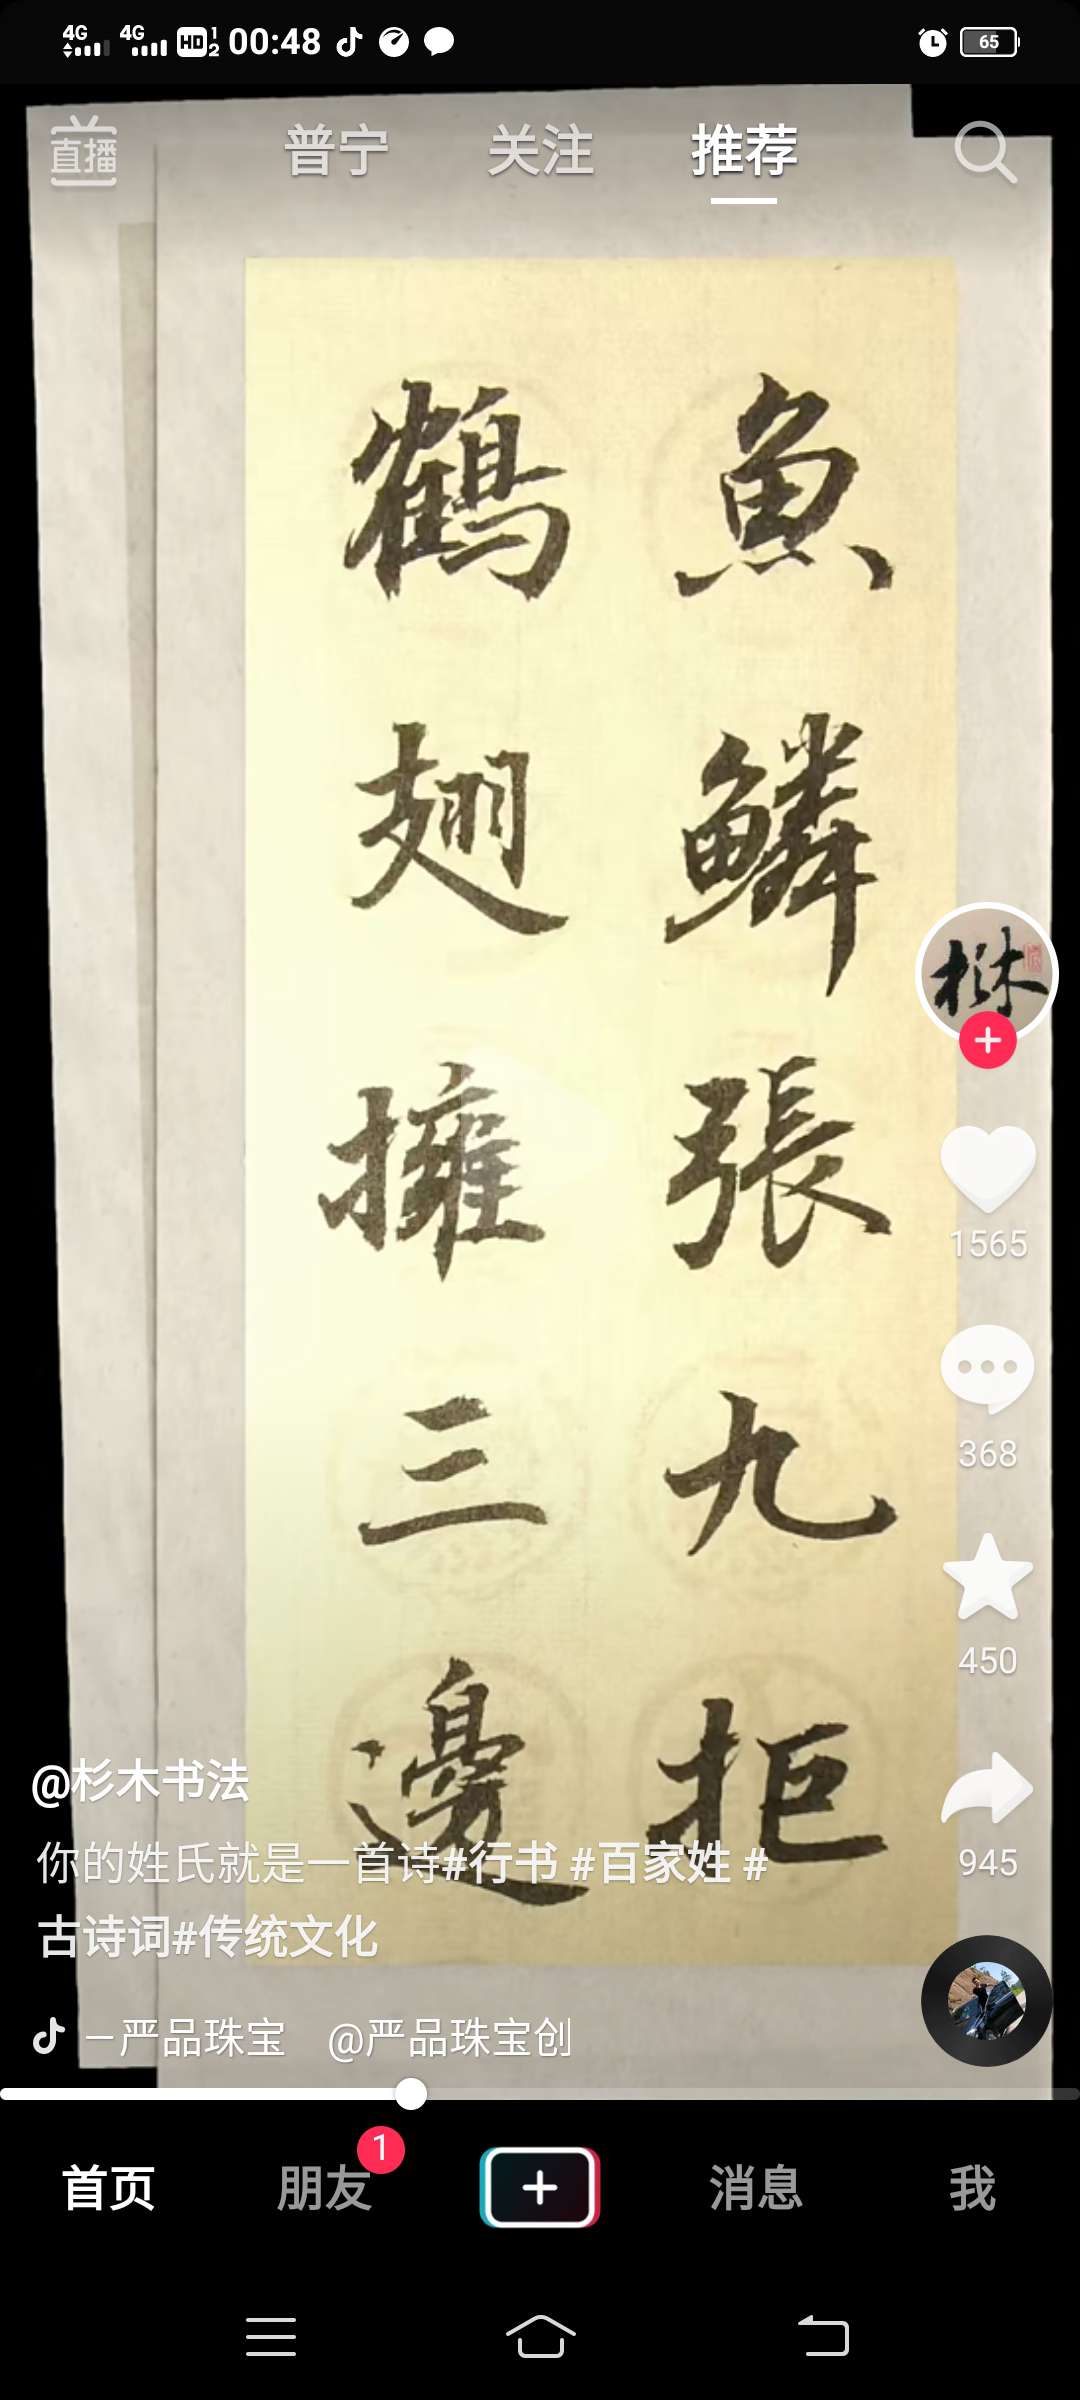 4G 4G HD 1 2 00:48 65
直播 普宁 关注 推荐
魚鱗張九拒
鶴翅擁三邊
1565
368
450
945
@杉木书法
你的姓氏就是一首诗#行书 #百家姓 #
古诗词#传统文化
一严品珠宝 @严品珠宝创
首页 朋友 1 消息 我